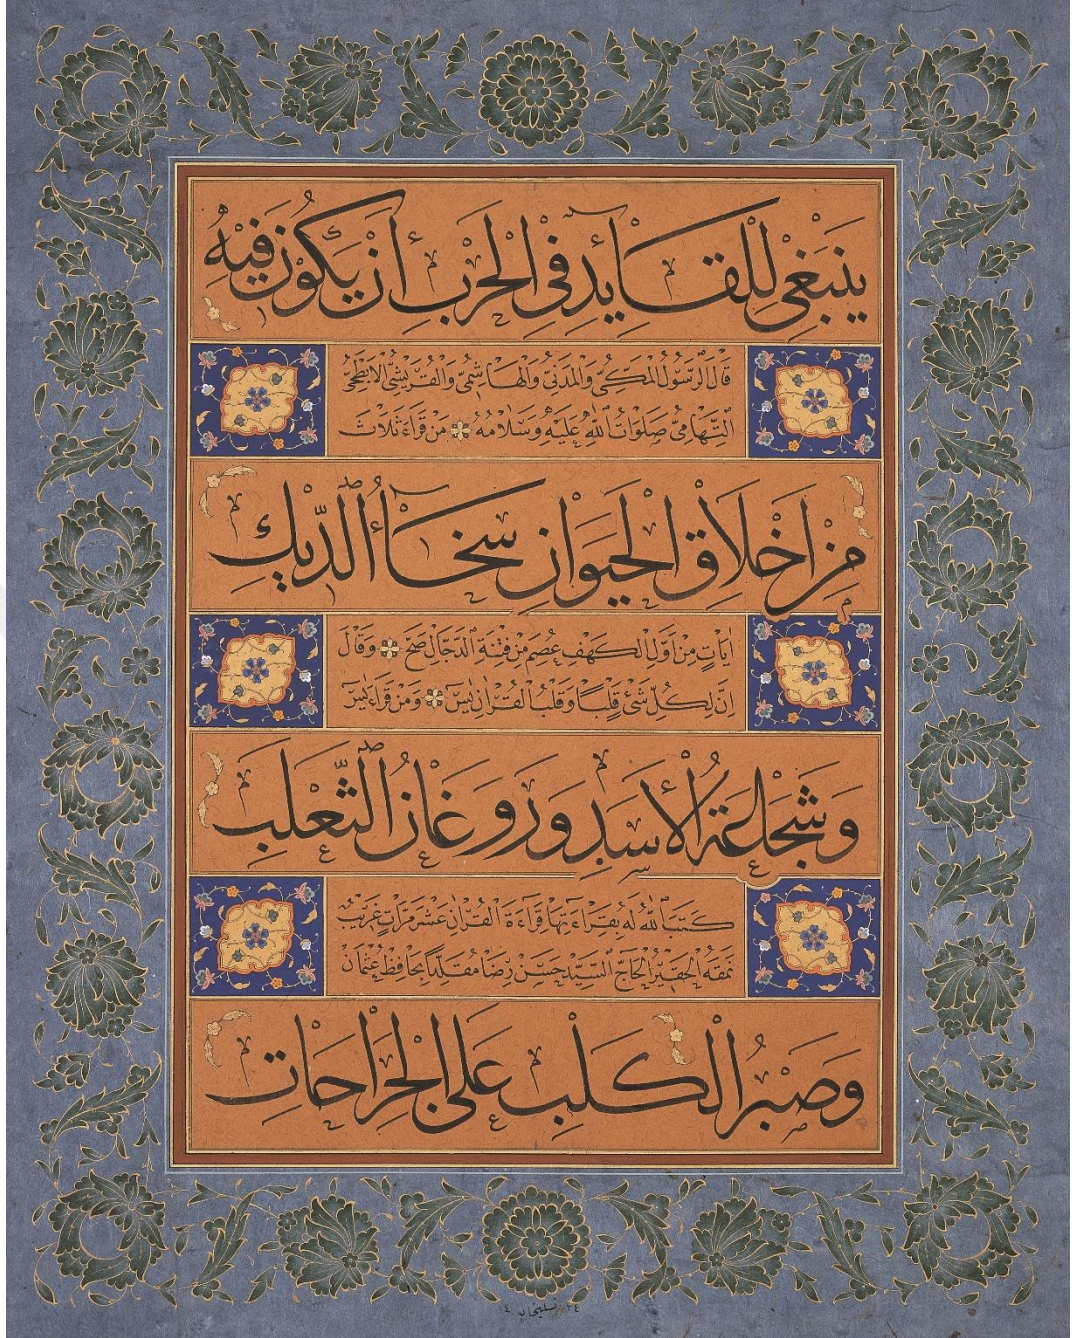 يَنْبَغِي لِلْقَائِدِ فِي الْحَرْبِ أَنْ يَكُونَ فِيهِ
قَالَ الرَّسُولُ الْمَكِّيُّ وَالْمَدَنِيُّ وَالْهَاشِمِيُّ وَالْقُرَيْشِيُّ الْاَبْطَحِيُّ
التِّهَامِيُّ صَلَوَاتُ اللهِ عَلَيْهِ وَسَلَامُهُ مَنْ قَرَاءَ ثَلَاثَ
مِنْ اَخْلَاقِ الْحَيَوَانِ سَخَآءُ الدِّيكِ
اٰيَاتٍ مِنْ اَوَّلِ الْكَهْفِ عُصِمَ مِنْ فِتْنَةِ الدَّجَّالِ صَحَّ وَقَالَ
اِنَّ لِكُلِّ شَيْءٍ قَلْبًا وَقَلْبُ الْقُرْاٰنِ يٰسٓ وَمَنْ قَرَاءَ يٰسٓ
وَشَجَاعَةُ الْأَسَدِ وَرَوَغَانُ الثَّعْلَبِ
كَتَبَ اللهُ لَهُ بِقِرَاءَتِهَا قِرَاءَةَ الْقُرْاٰنِ عَشْرَ مَرَّاتٍ غَرِيبٌ
نمقه الحقير الحاج السيد حسن رضا مقلدا بحافظ عثمان
وَصَبْرُ الْكَلْبِ عَلَى الْجِرَاحَاتِ